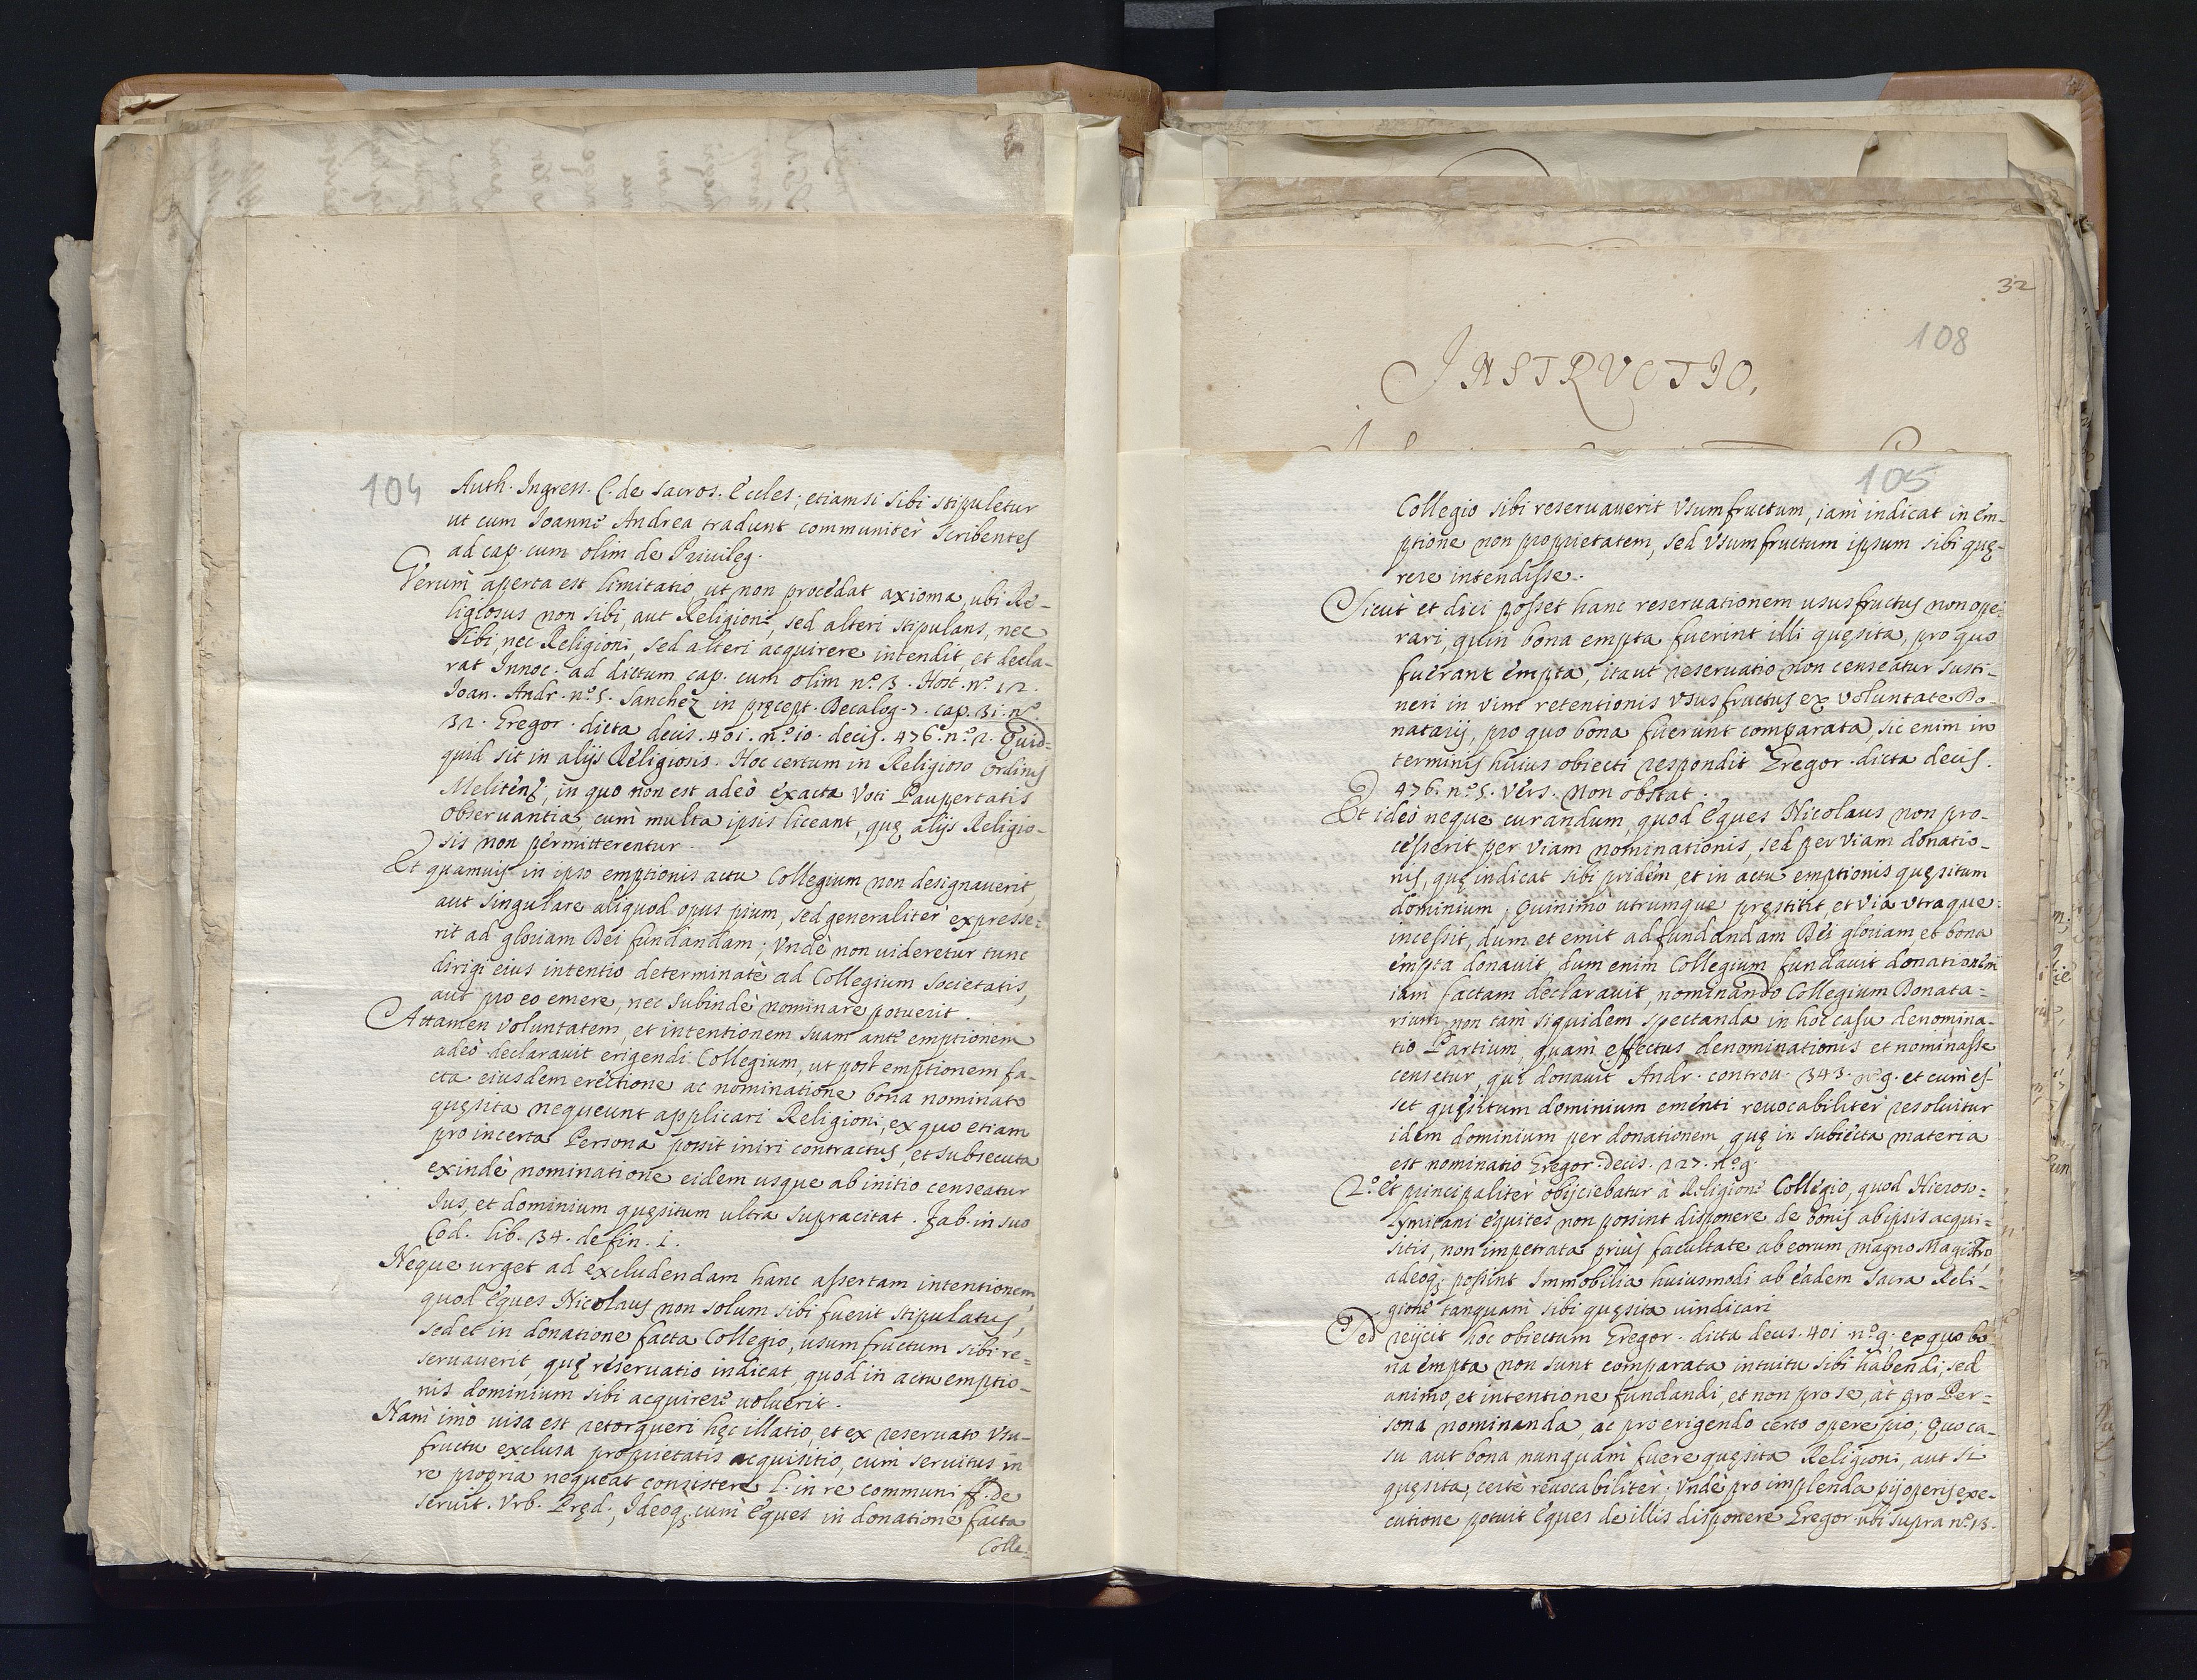 104
Auth. Ingress. C. de sacros. Eccles; etiamsi sibi stipuletur
ut cum Joanne Andrea tradunt communiter Scribentes
ad cap. cum olim de Priuileg.
Verum aperta est limitatio, ut non procedat axioma, ubi Re-
ligiosus non sibi, aut Religioni, sed alteri stipulans, nec
sibi, nec Religioni, sed alteri acquirere intendit, et decla-
rat Innoc. ad dictum cap. cum olim nº 3. Host. nº 12.
Joan. Andr. nº 5. Sanchez in pręcept. Decalog. 7. cap. 31. nº
32. Gregor. dicta decis. 401. nº 10. decis. 476. nº 2. Quid-
quid sit in alijs Religiosis. Hoc certum in Religioso Ordinis
Melitens; in quo non est adeò exacta Voti Paupertatis
obseruantia, cum multa ipsis liceant, quę alijs Religio-
sis non permitterentur.
Et quamuis in ipso emptionis actu Collegium non designauerit,
aut singulare aliquod opus pium, sed generaliter expresse-
rit ad gloriam Dei fundandam; Vndè non uideretur tunc
dirigi eius intentio determinatè ad Collegium Societatis,
aut pro eo emere, nec subindè nominare potuerit.
Attamen voluntatem, et intentionem suam ante emptionem
adeò declarauit erigendi Collegium, ut post emptionem fa-
cta eiusdem erectione ac nominatione bona nominato
quęsita nequeunt applicari Religioni, ex quo etiam
pro incerta Persona possit iniri contractus, et subsecuta
exindè nominatione eidem usque ab initio censeatur
Ius, et dominium quęsitum ultra supracitat. Fab. in suo
Cod. lib. 34. defin. 1.
Neque urget ad excludendam hanc assertam intentionem,
quod Eques Nicolaus non solum sibi fuerit stipulatus,
sed et in donatione facta Collegio, usumfructum sibi re-
seruauerit, quę reseruatio indicat, quod in actu emptio-
nis dominium sibi acquirere uoluerit.
Nam imò uisa est retorqueri hęc illatio, et ex reseruato Vsu-
fructu exclusa proprietatis acquisitio, cum seruitus in
re propria nequeat consistere l. in re communi ff. de
seruit. Vrb. Pręd.; Ideoq; cum Eques in donatione facta
Colle-
32
108
INSTRVCTIO,
105
Collegio sibi reseruauerit Vsumfructum, iam indicat in em-
ptione non proprietatem, sed Vsumfructum ipsum sibi quę-
rere intendisse.
Sicut et dici posset hanc reseruationem ususfructus non ope-
rari, quin bona empta fuerint illi quęsita, pro quo
fuerant empta, ita ut reseruatio non censeatur susti-
neri in vim retentionis Vsusfructus ex voluntate Do-
natarij, pro quo bona fuerunt comparata, sic enim in
terminis huius obiecti respondit Gregor. dicta decis.
476. nº 5. vers. Non obstat.
Et ideò neque curandum, quod Eques Nicolaus non pro-
cesserit per viam nominationis, sed per viam donatio-
nis, quę indicat sibi pridem et in actu emptionis quęsitum
dominium; Quinimò utrumque pręstitit, et via utraque
incessit, dum et emit ad fundandam Dei gloriam et bona
empta donauit, dum enim Collegium fundauit donationem
iam factam declarauit, nominando Collegium Donata-
rium, non tam siquidem spectanda in hoc casu denomina-
tio Partium, quam effectus denominationis et nominasse
censetur, qui donauit Andr. controu. 343. nº 9. et cum es-
set quęsitum dominium ementi reuocabiliter resoluitur
idem dominium per donationem, quę in subiecta materia
est nominatio Gregor. Decis. 127. nº 9.
2.º et principaliter obijciebatur à Religione Collegio, quod Hieroso-
lymitani equites non possint disponere de bonis ab ipsis acqui-
sitis, non impetrata prius facultate ab eorum Magno Magistro,
adeoq; possint Immobilia huiusmodi ab eadem Sacra Reli-
gione tanquam sibi quęsita uindicari
Sed reijcit hoc obiectum Gregor. dicta decis. 401 nº 9. ex quo bo-
na empta non sunt comparata intuitu sibi habendi, sed
animo, et intentione fundandi, et non pro se, at pro Per-
sona nominanda, ac pro erigendo certo opere pio; Quo ca-
su aut bona nunquam fuere quęsita Religioni, aut si
quęsita, certè reuocabiliter. Vndè pro implenda pij operis exe-
cutione potuit Eques de illis disponere Gregor. ubi supra nº 13.